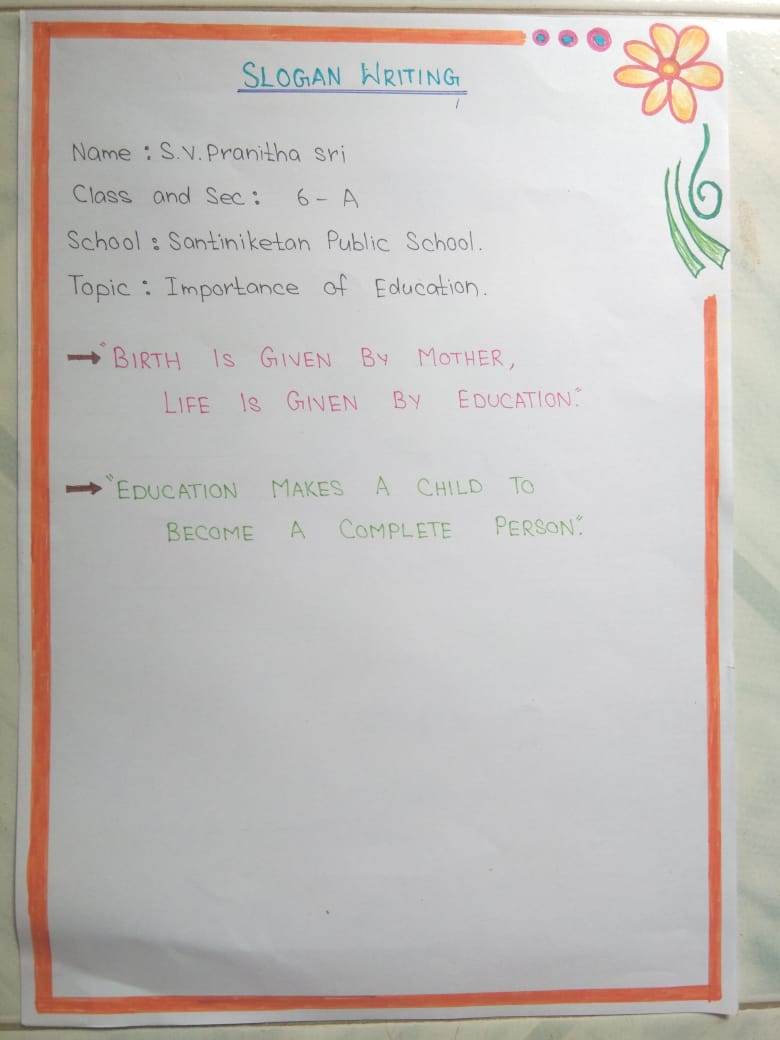 SLOGAN WRITING
Name : S.V. Pranitha sri
Class and Sec : 6 - A
School : Santiniketan Public School.
Topic : Importance of Education.
"BIRTH IS GIVEN BY MOTHER,
LIFE IS GIVEN BY EDUCATION."
"EDUCATION MAKES A CHILD TO
BECOME A COMPLETE PERSON."